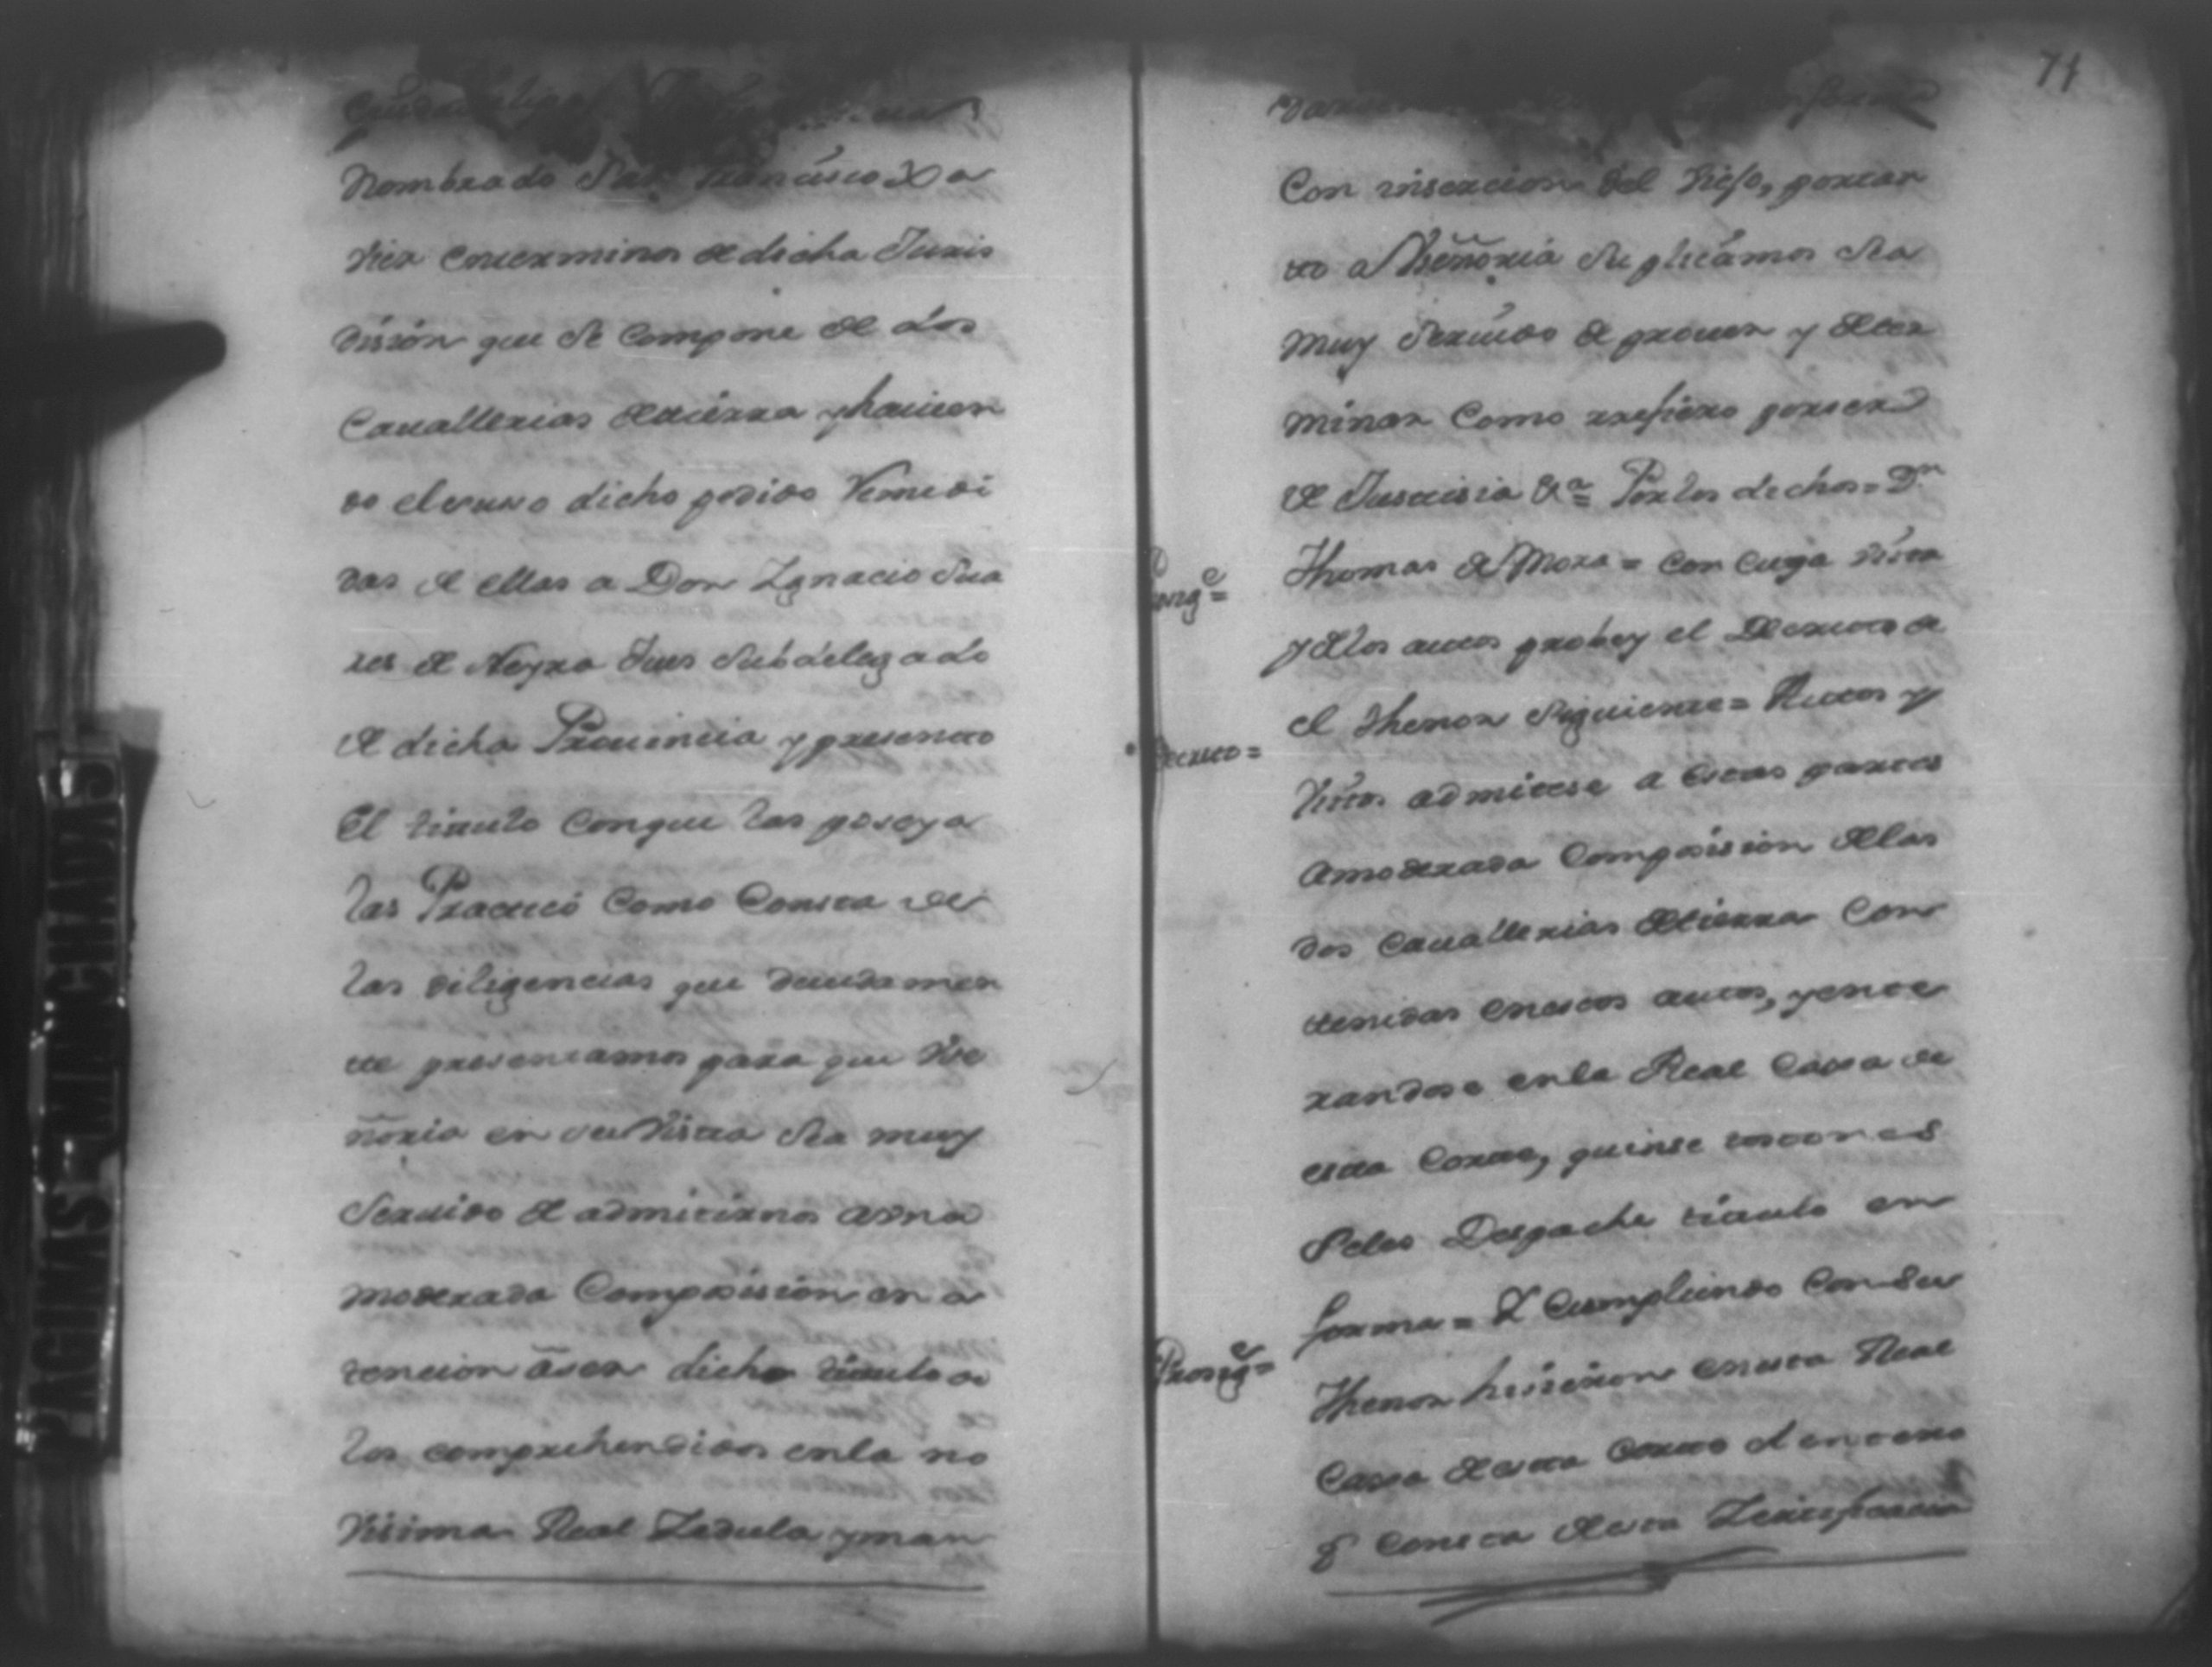 nombrado San Francisco Xa
vier enterminos de dicha Juris
dision que se compone de dos
Cauallerias detierra y hauien
do el suso dicho pedido Remedi
das de ellas a Don Ygnacio Sua
res de Neyra Jues Subdelegado
de dicha Prouincia y presento
El titulo Conque las poseya
las Practicó Como Consta de
las diligencias que deuidamen
te presentamos para que Vse
ñoria en su Vista Sea muy
Seruido de admitirnos auna
moderada Composision en a
tencion á ser dicho titulo de
los comprehendidos enla no
Visima Real Zedula y man
71
Con insercion del Viso, portan
to a Vseñoria Suplicámos Sea
muy Seruido de proueer y deter
minar Como refiero porser
de Justisia &a Por los dichos = Dn
Thomas de Mora = Con Cuya Vista
Prosige =
y delos autos probey el Decreto de
el thenor Siguiente = Autos y
Decreto =
Vistos admitese a estas partes
amoderada Composision delas
dos Cauallerias detierra Con
tenidas enestos autos, y ente
randose enla Real Caxa de
esta Corte, quinse tostones
Seles Despache titulo en
forma = Y Cumpliendo Con Su
Prosige =
thenor hisieron enesta Real
Caxa de esta Corte el entero
q Consta de esta Zertificacion